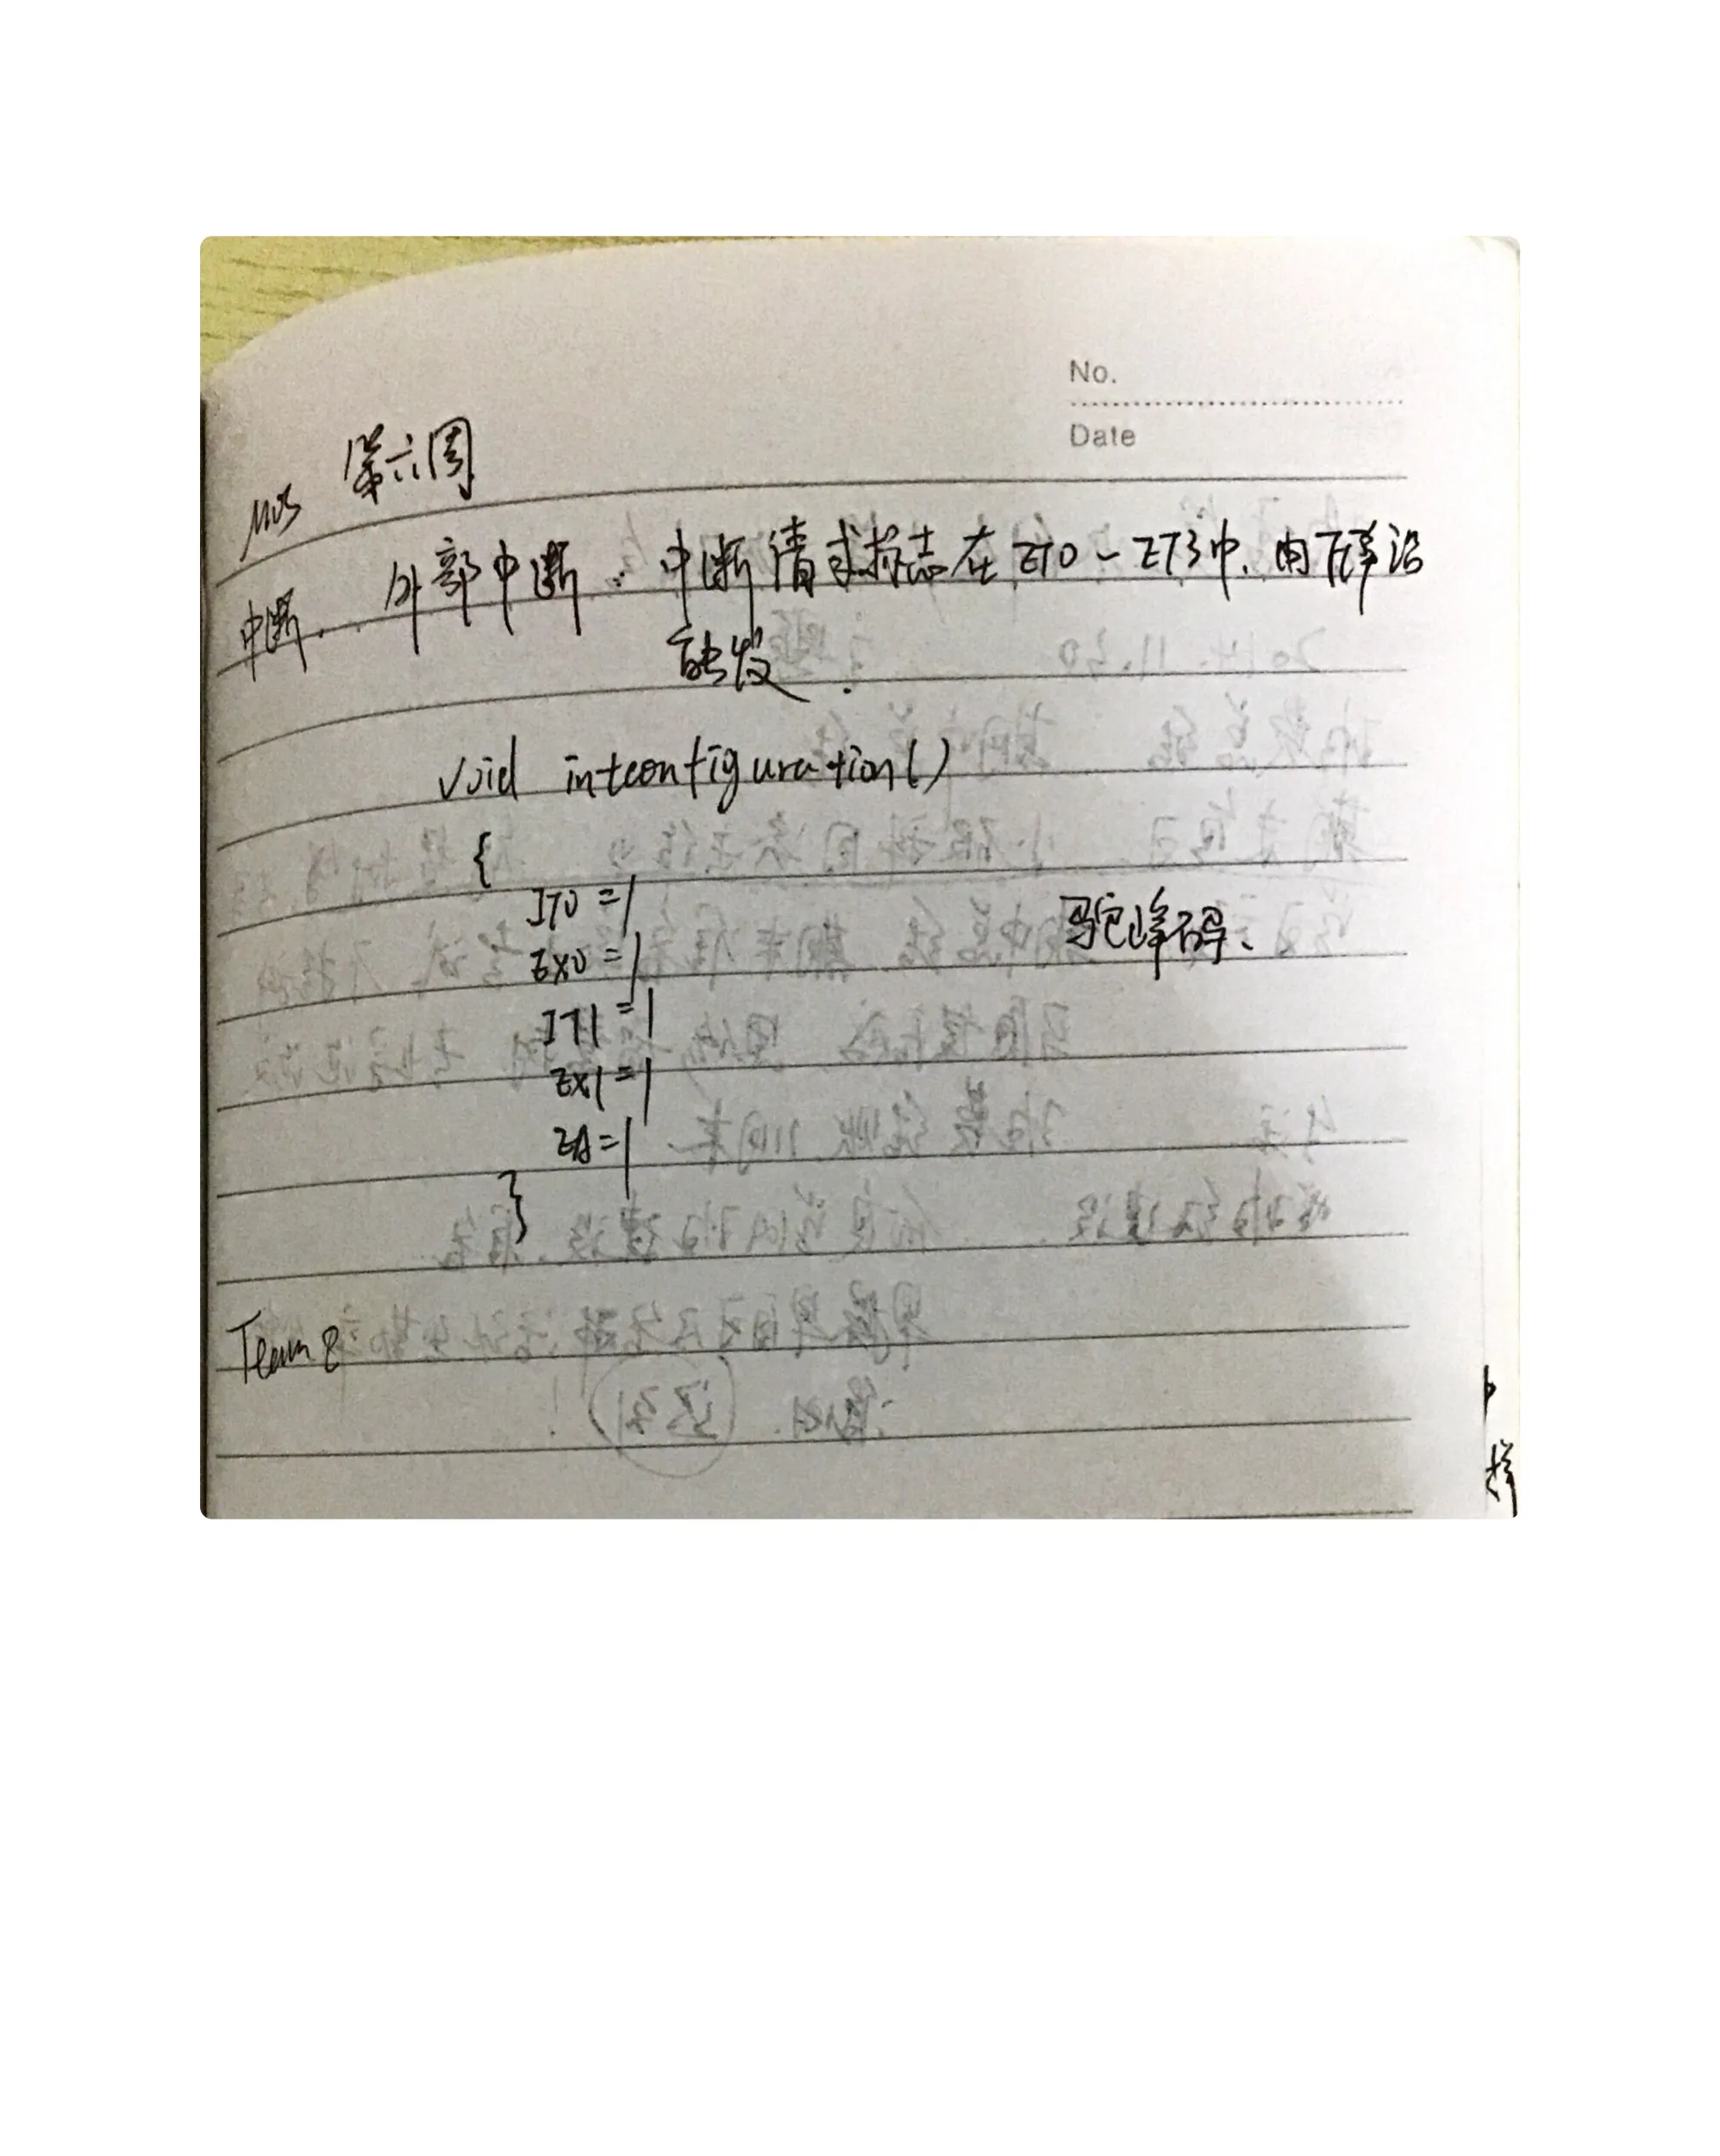 No.
Date
第六周
中断. 外部中断: 中断请求标志在ET0-ET3中.由下降沿
触发.
void intconfiguration()
{
IT0=1
EX0=1
IT1=1
EX1=1
EA=1
}
驼峰码、
Team 8